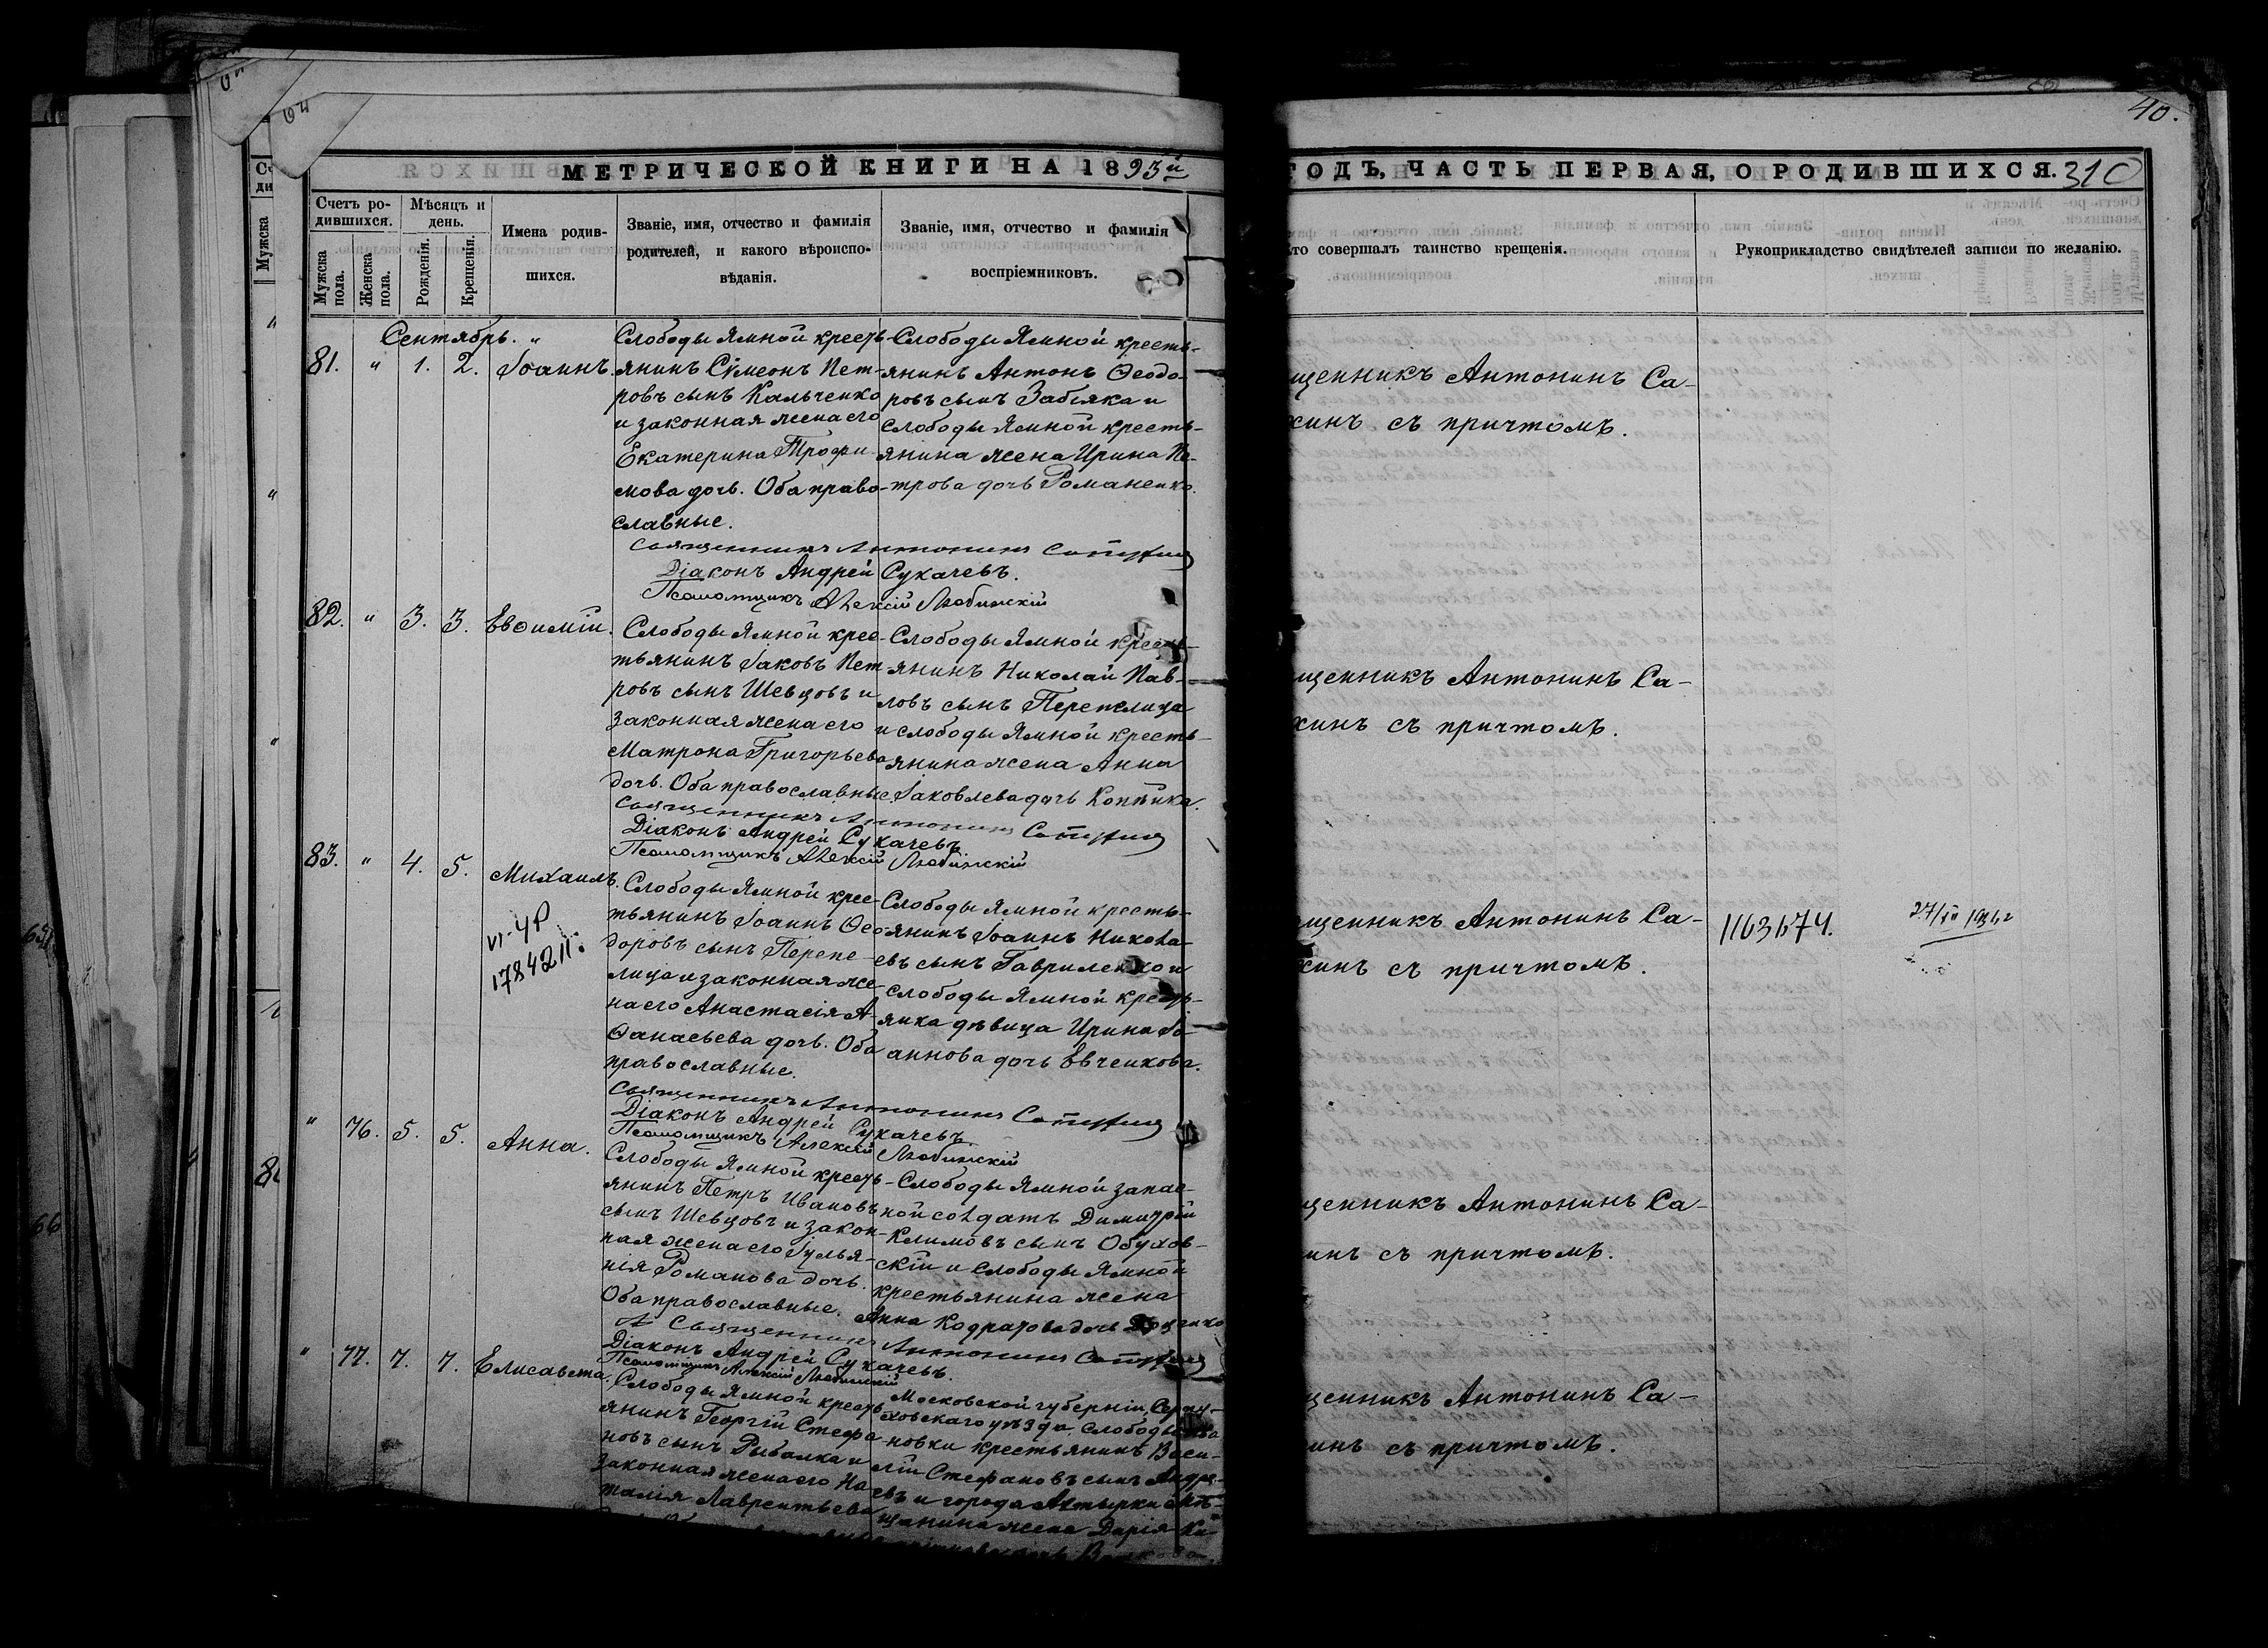 40.
МЕТРИЧЕСКОЙ КНИГИ НА 1893й
ГОДЪ, ЧАСТЬ ПЕРВАЯ, О РОДИВШИХСЯ. 310
Счетъ ро-
дившихся.
Мужска
пола.
Женска
пола.
Мѣсяцъ и
день.
Рожденія.
Крещенія.
Имена родив-
шихся.
Званіе, имя, отчество и фамилія
родителей, и какого вѣроиспо-
вѣданія.
Званіе, имя, отчество и фамилія
воспріемниковъ.
то совершалъ таинство крещенія.
Рукоприкладство свидѣтелей записи по желанію.
Сентябрь. "
81. " 1. 2. Іоаннъ.
Слободы Ямной кресть-
янинъ Сѵмеонъ Пет-
ровъ сынъ Кальченко
и законная жена его
Екатерина Трофи-
мова дочь. Оба право-
славные.
Слободы Ямной кресть-
янинъ Антонъ Ѳеодо-
ровъ сынъ Забіяка и
слободы Ямной кресть-
янина жена Ирина Пе-
трова дочь Романенко.
щенникъ Антонинъ Са-
хинъ съ причтомъ.
Священникъ Антонинъ
Діаконъ Андрей Сукачевъ.
Псаломщикъ Алексій Любинскій
82. " 3. 3. Евѳимій.
Слободы Ямной крес-
тьянинъ Іаковъ Пет
ровъ сынъ Шевцовъ и
законная жена его
Матрона Григорьева
дочь. Оба православные.
Слободы Ямной кресть-
янинъ Николай Пав-
ловъ сынъ Перепелица
и слободы Ямной кресть-
янина жена Анна
Іаковлева дочь
щенникъ Антонинъ Са-
хинъ съ причтомъ.
Священникъ Антонинъ
Діаконъ Андрей Сукачевъ
Псаломщикъ Алексій Любинскій
83. " 4. 5. Михаилъ.
VI-ЧР
1784211
Слободы Ямной крес-
тьянинъ Іоаннъ Ѳео-
доровъ сынъ Перепе-
лица и законная же-
на его Анастасія А-
ѳанасьева дочь. Оба
православные.
Слободы Ямной кресть-
янинъ Іоаннъ Никола-
евъ сынъ Гавриленко и
слободы Ямной кресть-
янка дѣвица Ирина Іо-
аннова дочь Евченкова.
щенникъ Антонинъ Са-
хинъ съ причтомъ.
1163674.
Священникъ Антонинъ
Діаконъ Андрей Сукачевъ
Псаломщикъ Алексій Любинскій
" 76. 5. 5. Анна.
Слободы Ямной кресть-
янинъ Петръ Ивановъ
сынъ Шевцовъ и закон-
ная жена его Іулья-
нія Романова дочь.
Оба православные.
Слободы Ямной запас-
ной солдатъ Димитрій
Климовъ сынъ Обухов-
скій и слободы Ямной
крестьянина жена
Анна Кодратова дочь
щенникъ Антонинъ Са-
инъ съ причтомъ.
Священникъ Антонинъ
Діаконъ Андрей Сукачевъ.
Псаломщикъ Алексій Любинскій
" 77. 7. 7. Елисавета.
Слободы Ямной кресть
янинъ Георгій Стефа
новъ сынъ Рыбалка и
законная жена его На
талія Лаврентьева
Московской губерніи, Серпу-
ховскаго уѣзда, слободы
новки крестьянинъ Васи-
лій Стефановъ сынъ Андре-
евъ и города Ахтырки мѣ-
щанина жена Дарія Ки-
щенникъ Антонинъ Са-
инъ съ причтомъ.